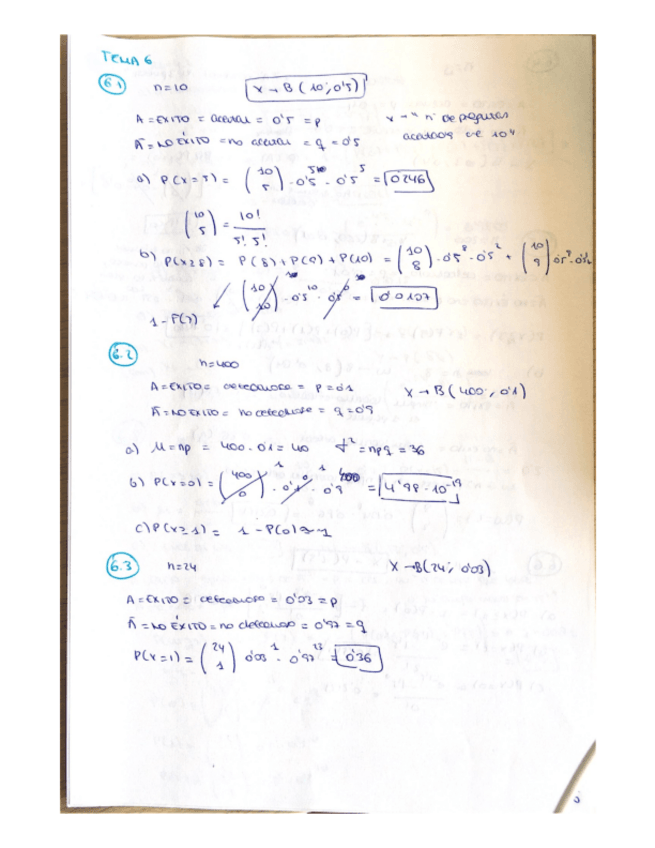 TEMA 6
6.1 n=10 X→B(10; 0'5)
A = EXITO = acertar = 0'5 = p x → "nº de preguntas
Ā = NO ÉXITO = no acertar = q = 0'5 acertadas de 10"
a) P(x=5) = (10 5) · 0'5^5 · 0'5^5 = 0'246
(10 5) = 10! / 5! 5!
b) P(x≥8) = P(8) + P(9) + P(10) = (10 8) · 0'5^8 · 0'5^2 + (10 9) 0'5^9 · 0'5
(10 10) · 0'5^10 · 0'5^0 = 0'0107
1 - F(7)
6.2 n=400
A = EXITO = defectuoso = p = 0'1 X → B(400; 0'1)
Ā = NO EXITO = no defectuoso = q = 0'9
a) μ = np = 400 · 0'1 = 40 σ² = npq = 36
b) P(x=0) = (400 0) · 0'1^0 · 0'9^400 = 4'98 · 10^-19
c) P(x≥1) = 1 - P(0) ≈ 1
6.3 n=24 X→B(24; 0'03)
A = EXITO = defectuoso = 0'03 = p
Ā = NO ÉXITO = no defectuoso = 0'97 = q
P(x=1) = (24 1) 0'03^1 · 0'97^23 = 0'36